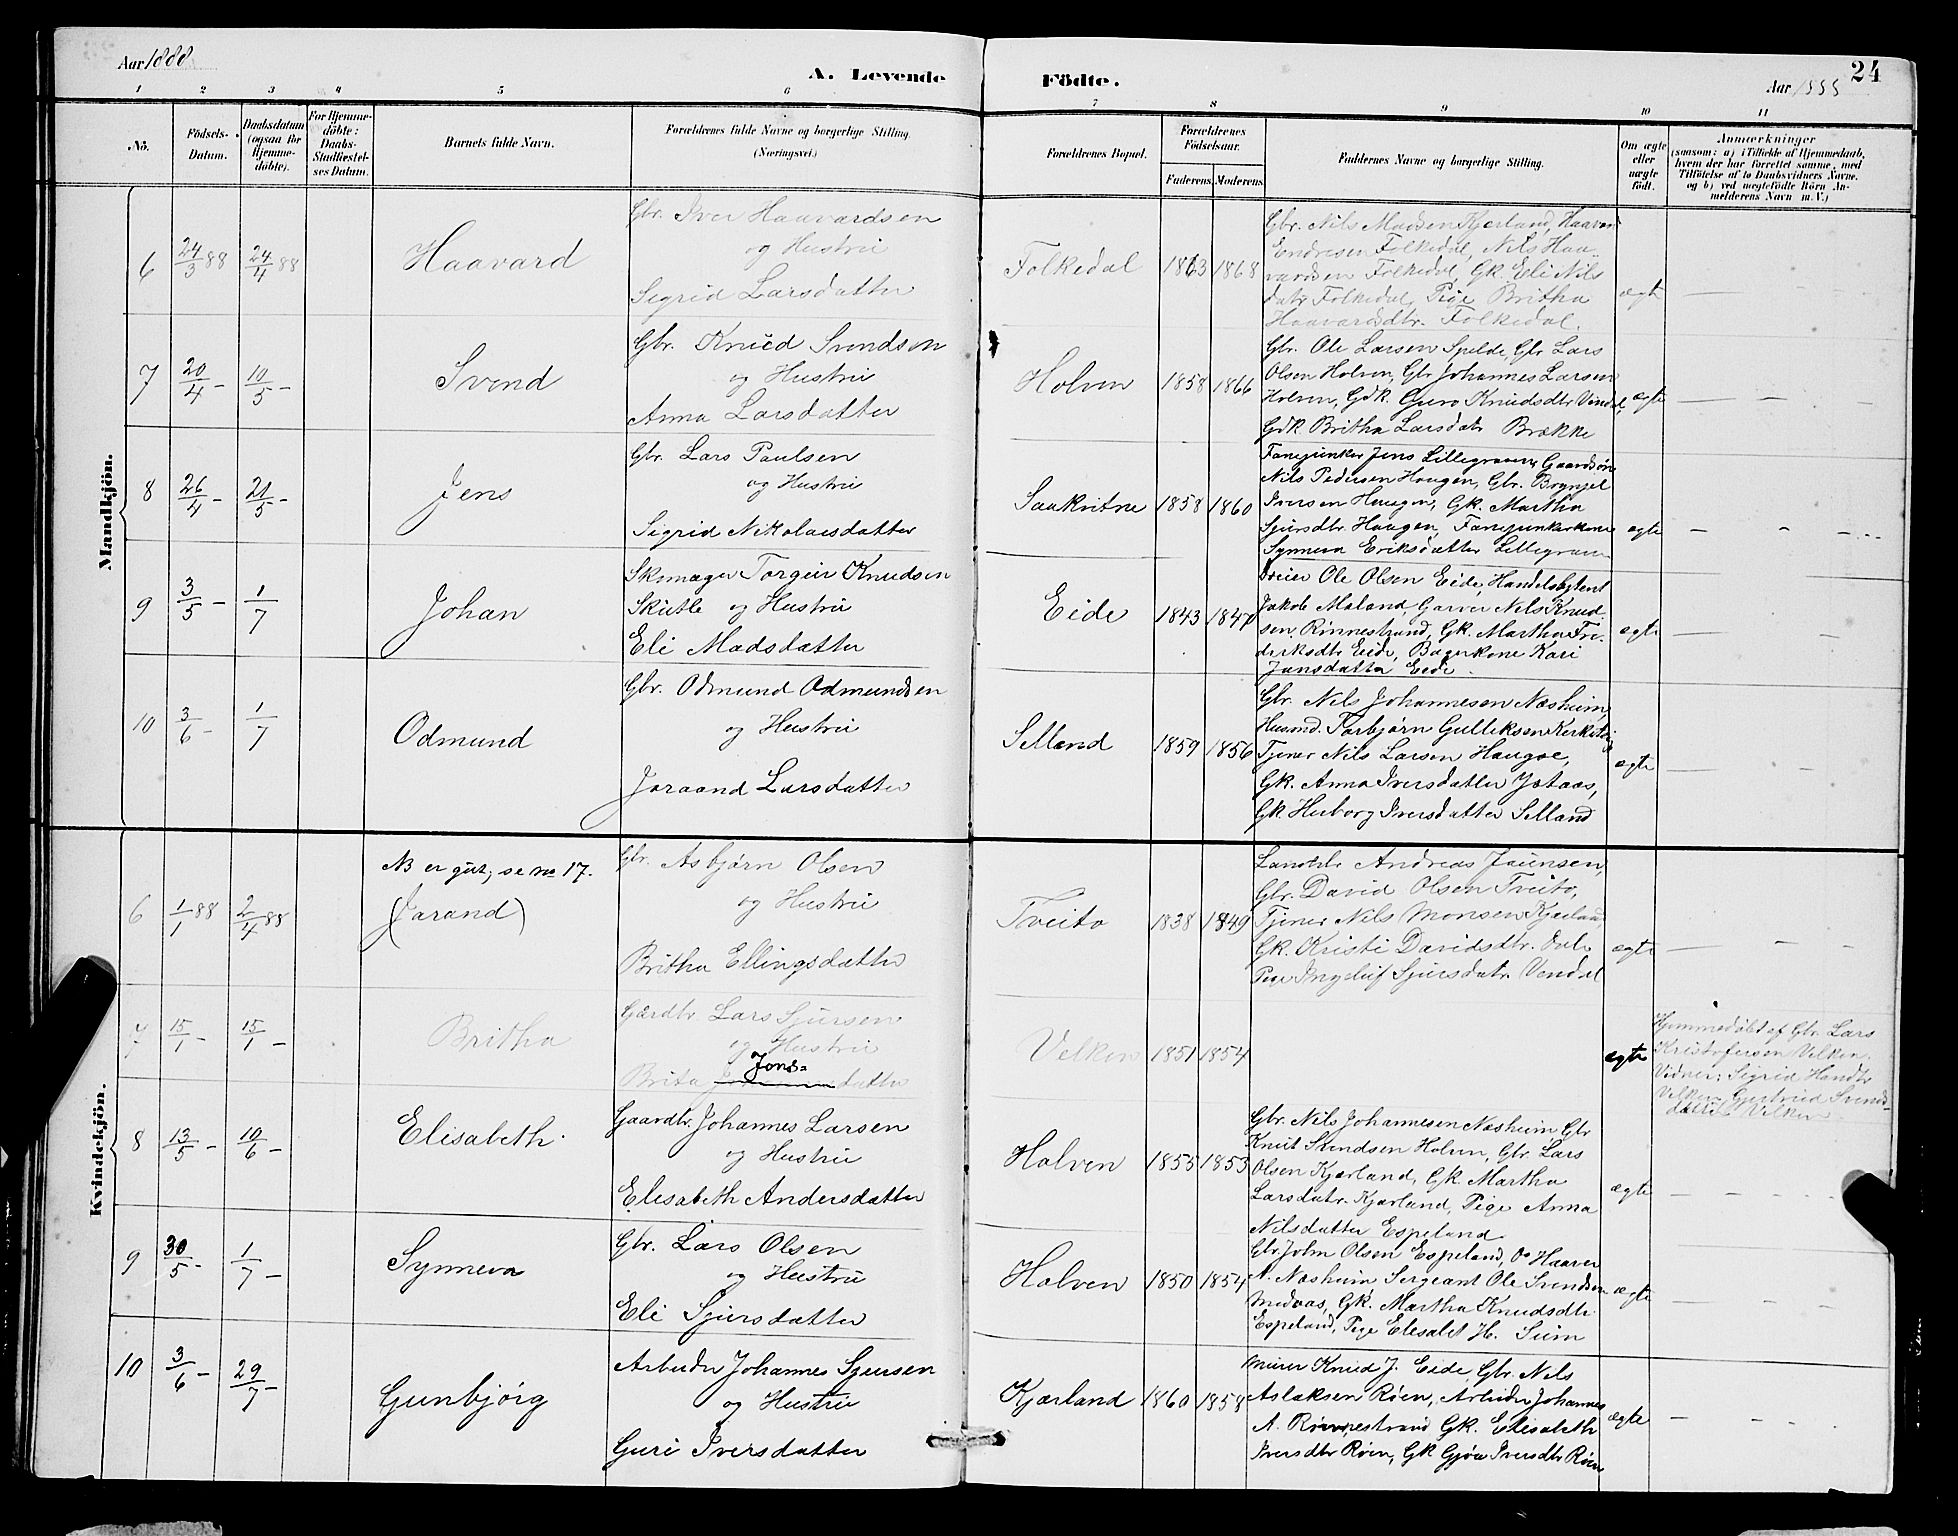 Aar 1888
A. Levende Födte.
Aar 1888
24
1 2 3 4 5 6 7 8 9 10 11
No.
Födsels-Datum.
Daabsdatum (ogsaa for Hjemmedöbte).
For Hjemmedöbte: Daabs-Stadfæstelses Datum.
Barnets fulde Navn.
Forældrenes fulde Navne og borgerlige Stilling. (Næringsvei.)
Forældrenes Bopæl.
Forældrenes Födselsaar.
Faderens Moderens
Faddernes Navne og borgerlige Stilling.
Om ægte eller uægte födt.
Anmærkninger
(saasom: a) i Tilfælde af Hjemmedaab,
hvem der har forrettet samme, med
Tilföielse af to Daabsvidners Navne,
og b) ved uægtefödte Börn An-
melderens Navn m. V.)
Mandkjön.
6 24/3 88 24/4 88 Haavard
Gbr. Iver Haavardsen
og Hustru
Sigrid Larsdatter
Folkedal 1863 1868
Gbr. Nils Madsen Kjerland, Haavar
Endresen Folkedal, Nils Haa-
vardsen Folkedal, Gk. Eli Nils
datr Folkedal, Pige Britha
Haavardsdtr. Folkedal.
ægte
7 20/4 - 10/5 - Svend
Gbr. Knud Svendsen
og Hustru
Anna Larsdatter
Holven 1858 1866
Gbr. Ole Larsen Spilde, Gbr Lars
Olsen Holven, Gbr Johannes Larsen
Holven, Gdk. Guro Knudsdtr Vindal,
Gdk Britha Larsdatr Brække
ægte
8 26/4 - 21/5 - Jens
Gbr. Lars Paulsen
og Hustru
Sigrid Nikolaisdatter
Saakvitne 1858 1860
Fanejunker Jens Lillegraven, Gaardsön
Nils Pedersen Haugen, Gbr. Brynjel
Iversen Haugen, Gk. Martha
Sjursdtr. Haugen, Fanejunkerkone
Synneva Eriksdatter Lillegraven
ægte
9 3/5 - 1/7 Johan
Skomager Torgeir Knudsen
Skutle og Hustru
Eli Madsdatter
Eide 1843 1847
Dreier Ole Olsen Eide, Handelsbetjent
Jakob Maland, Garver Nils Knud
sen Rönnestrand, Gk. Martha Fre-
driksdtr Eide, Bagerkone Kari
Jansdatter Eide.
ægte
10 3/6 - 1/7 Odmund
Gbr. Odmund Odmundsen
og Hustru
Joraand Larsdatter
Selland 1859 1856
Gbr. Nils Johannesen Næsheim,
Husmd. Torbjørn Gulleksen
Tjener Nils Larsen Haugse,
Gk. Anna Iversdatter Jataas,
Gk Herborg Iversdatter Selland
ægte
Kvindekjön.
NB er gut, se no 17.
6 1/1 88 2/4 88 (Jarand)
Gbr. Asbjørn Olsen
og Hustru
Britha Ellingsdatter
Tveito 1838 1849
Landhdlr Andreas Jaunsen,
Gbr. David Olsen Tveito,
Tjener Nils Monsen Kjerland,
Gk. Kristi Davidsdtr. Dale
Pige Ingeleif Sjursdatr. Vendal
ægte
7 15/1 - 15/1 - Britha
Gardbr Lars Sjursen
og Hustru
Brita Jons=datter
Velken 1851 1854
ægte
Hjemmedöbt af Gbr Lars
Kristofersen Velken.
Vidner: Sigrid
Velken, Gjertrud Svends-
datter Velken
8 13/5 - 10/6 - Elisabeth.
Gaardbr. Johannes Larsen
og Hustru
Elisabeth Andersdatter
Holven 1855 1853
Gbr. Nils Johannesen Næsheim Gbr
Knut Svendsen Holven, Gbr. Lars
Olsen Kjærland, Gk. Martha
Larsdatr. Kjærland, Pige Anna
Nilsdatter Espeland
ægte
9 30/5 - 1/7 - Synneva
Gbr. Lars Olsen
og Hustru
Eli Sjursdatter
Holven 1850 1854
Gbr John Olsen Espeland, Do Haavar
N. Næsheim Sergeant Ole Svendsen
Medaas, Gk. Martha Knudsdtr.
Espeland, Pige Elisabet H. Seim
ægte
10 3/6 - 29/7 - Gunbjörg
Arbeider Johannes Sjursen
og Hustru
Guri Iversdatter
Kjærland 1860 1858
Murer Knud J. Eide, Gbr. Nils
Aslaksen Röen, Arbeider Johannes
A. Rönnestrand Gk. Elisabeth
Iversdtr Röen, Gk Gjöa Iversdtr Röen
ægte